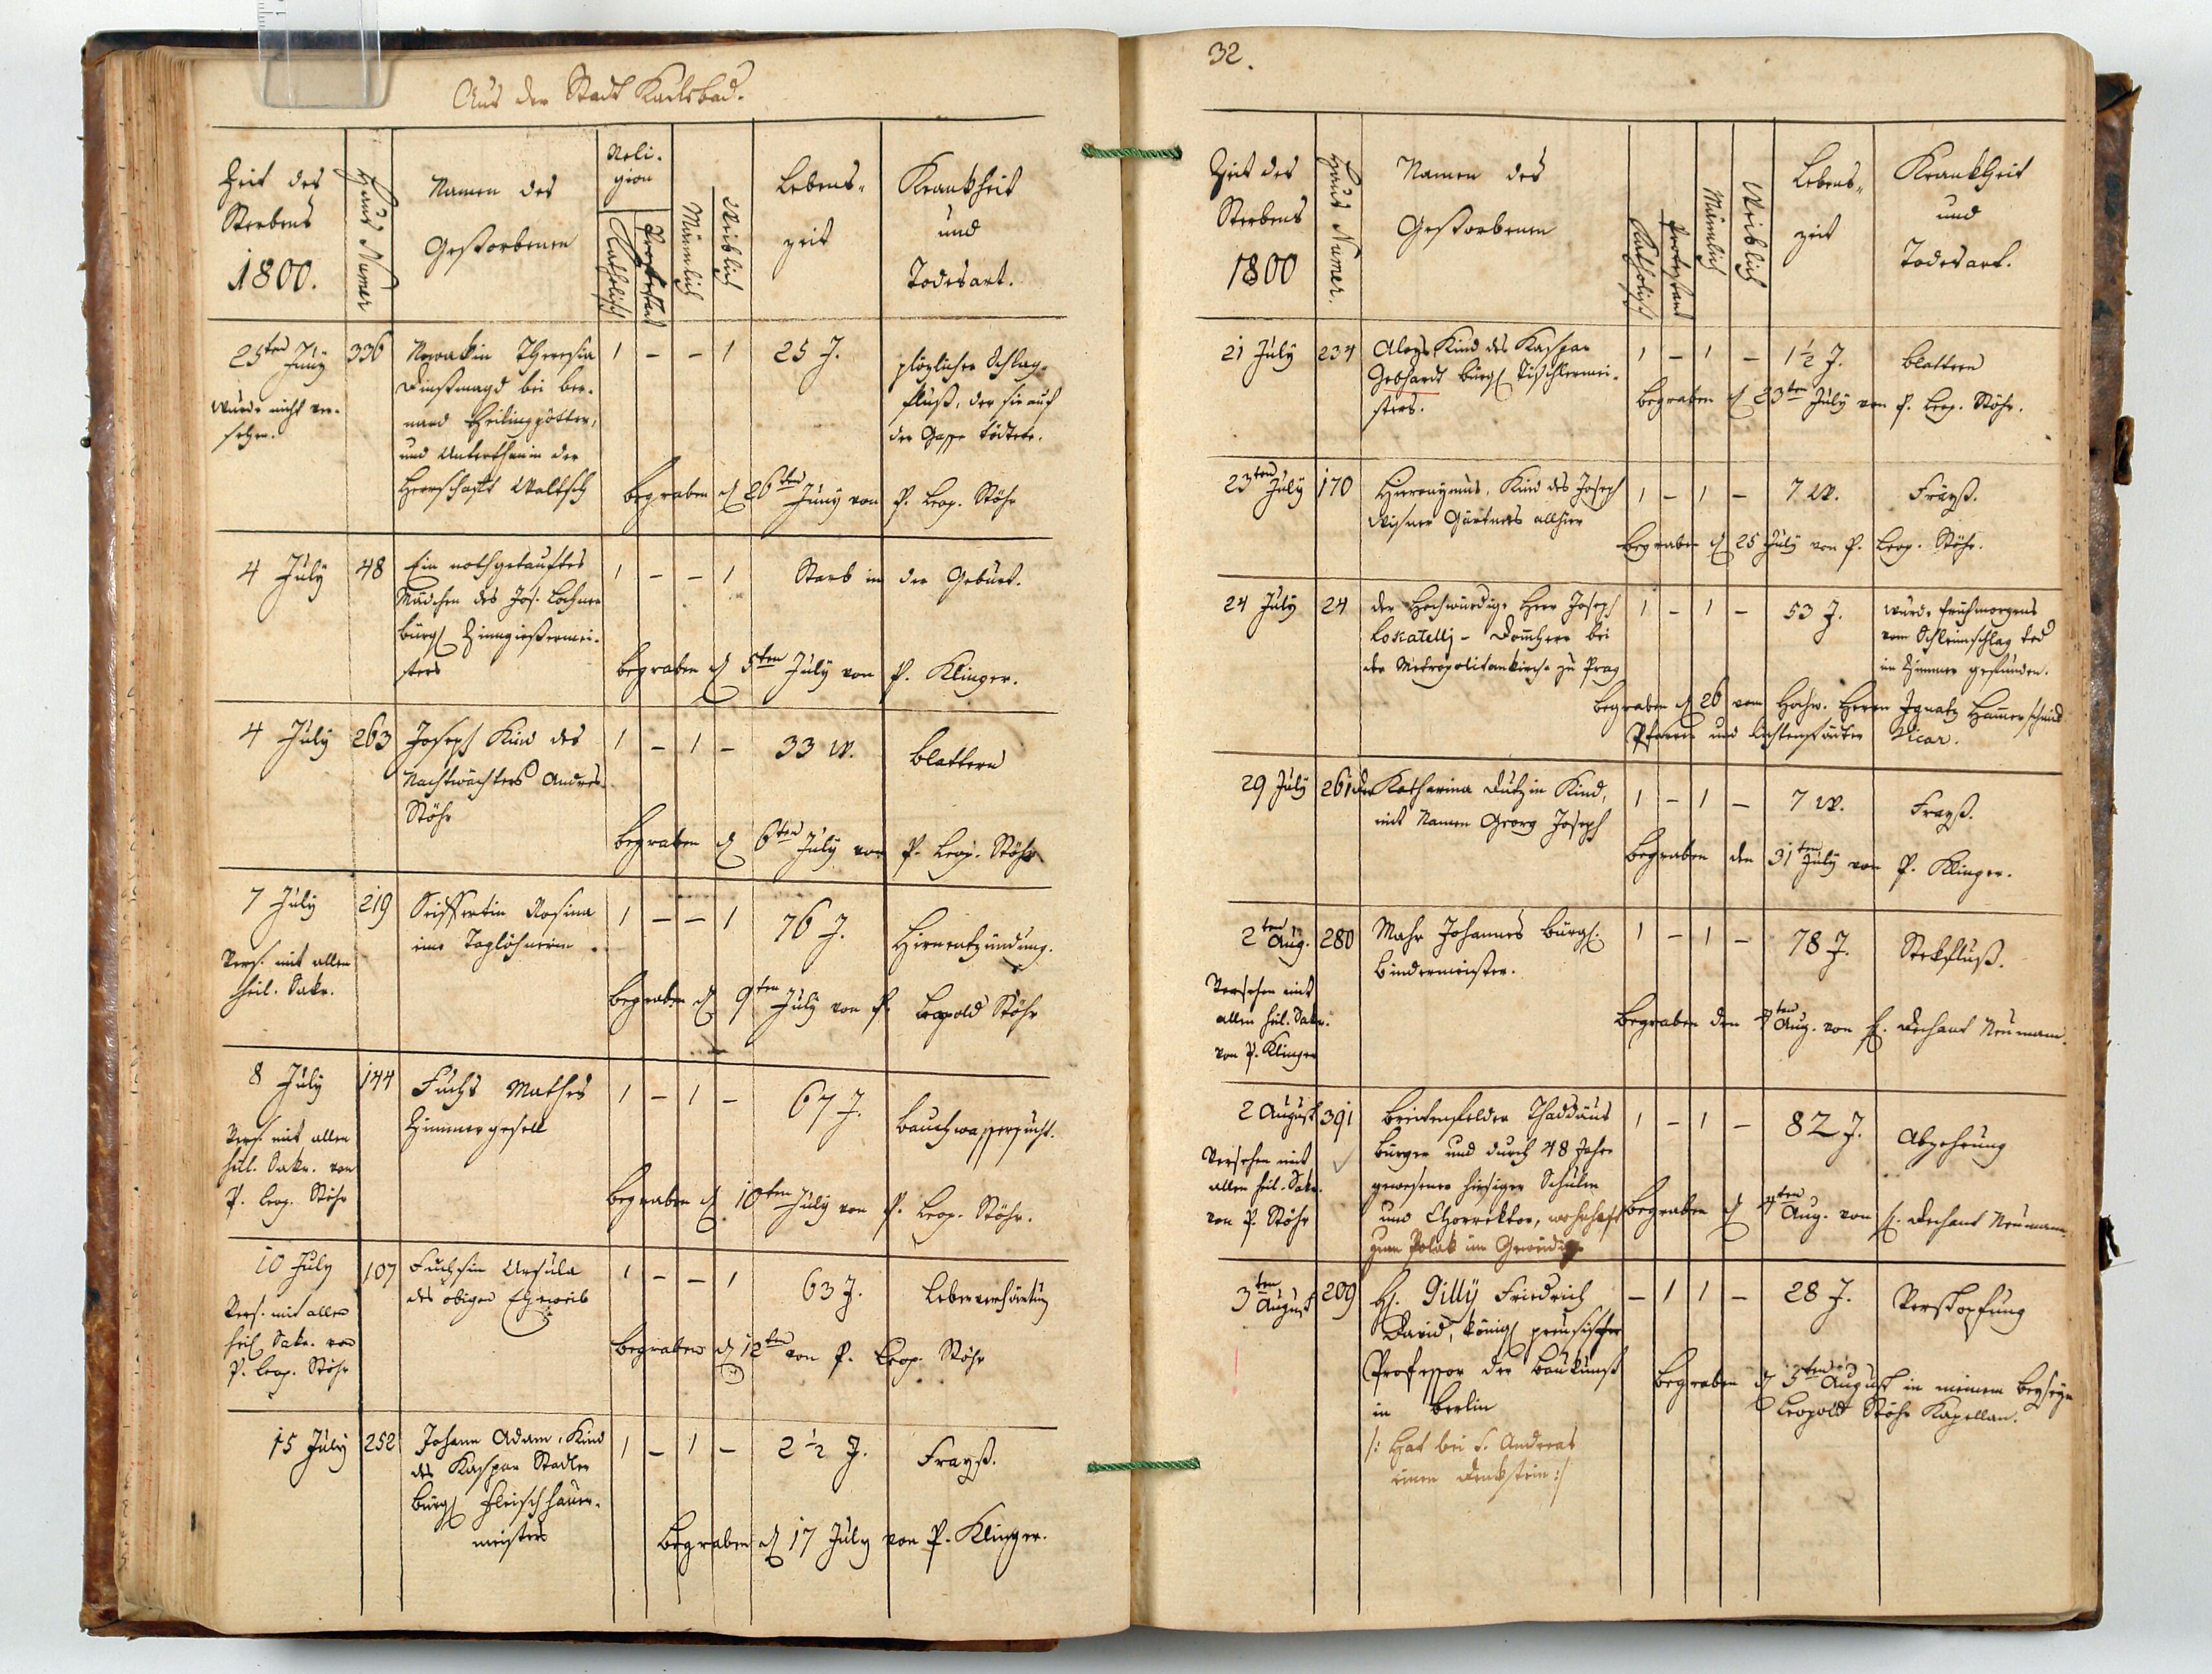 Aus der Stadt Karlsbad.
Zeit des
Sterbens
1800.
Haus Numer
Namen des
Gestorbenen
Reli-
gion
Katholisch
Protestant
Männlich
Weiblich
Lebens-
zeit
Krankheit
und
Todesart.
25ten Juny 336 Nowakin Theresia 1 – – 1 25 J. plözlicher Schlag-
Dinstmagd bei Ber-
fluß, der sie auf
wurde nicht ver-
nard Heilinggötter,
der Gasse tödtete.
sehen.
und Unterthanin der
Herrschaft Waltsch
begraben d 26ten Juny von P. Leop. Stöhr
4 July 48 Ein nothgetauftes 1 – – 1 Starb in der Geburt.
Mädchen des Jos. Lochner
bürgl Zinngießermei-
sters
begraben d 5ten July von P. Klinger.
4 July 263 Joseph Kind des 1 – 1 – 33 W. Blattern
Nachtwächters Andres
Stöhr
begraben d 6ten July von P. Leop. Stöhr
7 July 219 Seiffertin Rosina 1 – – 1 76 J. Hirnentzündung.
eine Taglöhnerin
Vers. mit allen
heil. Sakr.
begraben d 9ten July von P. Leopold Stöhr
8 July 144 Fuchs Mathes 1 – 1 – 67 J. Bauchwassersucht.
Zimmergesell
Vers. mit allen
heil. Sakr. von
P. Leop. Stöhr
begraben d 10ten July von P. Leop. Stöhr.
10 July 107 Fuchsin Ursula 1 – – 1 63 J. Leberverhärtung
des obigen Eheweib
Vers. mit allen
heil Sakr. von
P. Leop. Stöhr
begraben d 12ten von P. Leop. Stöhr
15 July 252 Johann Adam, Kind 1 – 1 – 2 1/2 J. Frayß.
des Kaspar Stadler
bürgl Fleischhauer-
meisters
begraben d 17 July von P. Klinger.
32.
Zeit des
Sterbens
1800
Haus Numer.
Namen des
Gestorbenen
Katholisch
Protestant
Männlich
Weiblich
Lebens-
zeit
Krankheit
und
Todesart.
21 July 234 Aloys, Kind des Kaspar 1 – 1 – 1 1/2 J. Blattern
Gebhardt bürgl Tischlermei-
sters.
begraben d 23ten July von P. Leop. Stöhr.
23ten July 170 Hieronymus, Kind des Joseph 1 – 1 – 7 W. Frayß.
Gärtners allhier
begraben d 25 July von P. Leop. Stöhr.
24 July 24 der Hochwürdige Herr Joseph 1 – 1 – 53 J. wurde frühmorgens
Loscatelly – Domherr bei
vom Schleimschlag tod
der Metropolitankirche zu Prag
im Zimmer gefunden.
begraben d 26 vom Hochw. Herrn Ignatz Hammerschmid
Pfarrer und Vicar.
29 July 261 der Katharina Dutzin Kind, 1 – 1 – 7 W. Frayß.
mit Namen Georg Joseph
begraben den 31ten July von P. Klinger.
2ten Aug. 280 Mahr Johannes bürgl. 1 – 1 – 78 J. Stekfluß.
Bindermeister.
Versehen mit
allen heil. Sakr.
von P. Klinger
begraben den 4ten Aug. von H. Dechant Neumann.
2 August 391 Breitenfelder Thaddäus 1 – 1 – 82 J. Abzehrung
Bürger und durch 48 Jahre
Versehen mit
allen heil. Sakr.
von P. Stöhr
gewesener hiesiger Schulen
und Chorrektor, wohnhaft
zum Polak im
begraben d 4ten Aug. von H. Dechant Neumann.
3ten August 209 H. Gilly Friedrich – 1 1 – 28 J. Verstopfung
David, königl preusischer
Professor der Baukunst
in Berlin
begraben d 5ten August in meinem Beyseyn
Leopold Stöhr Kapellan.
/: Hat bei S. Andreas
einen Denkstein :/